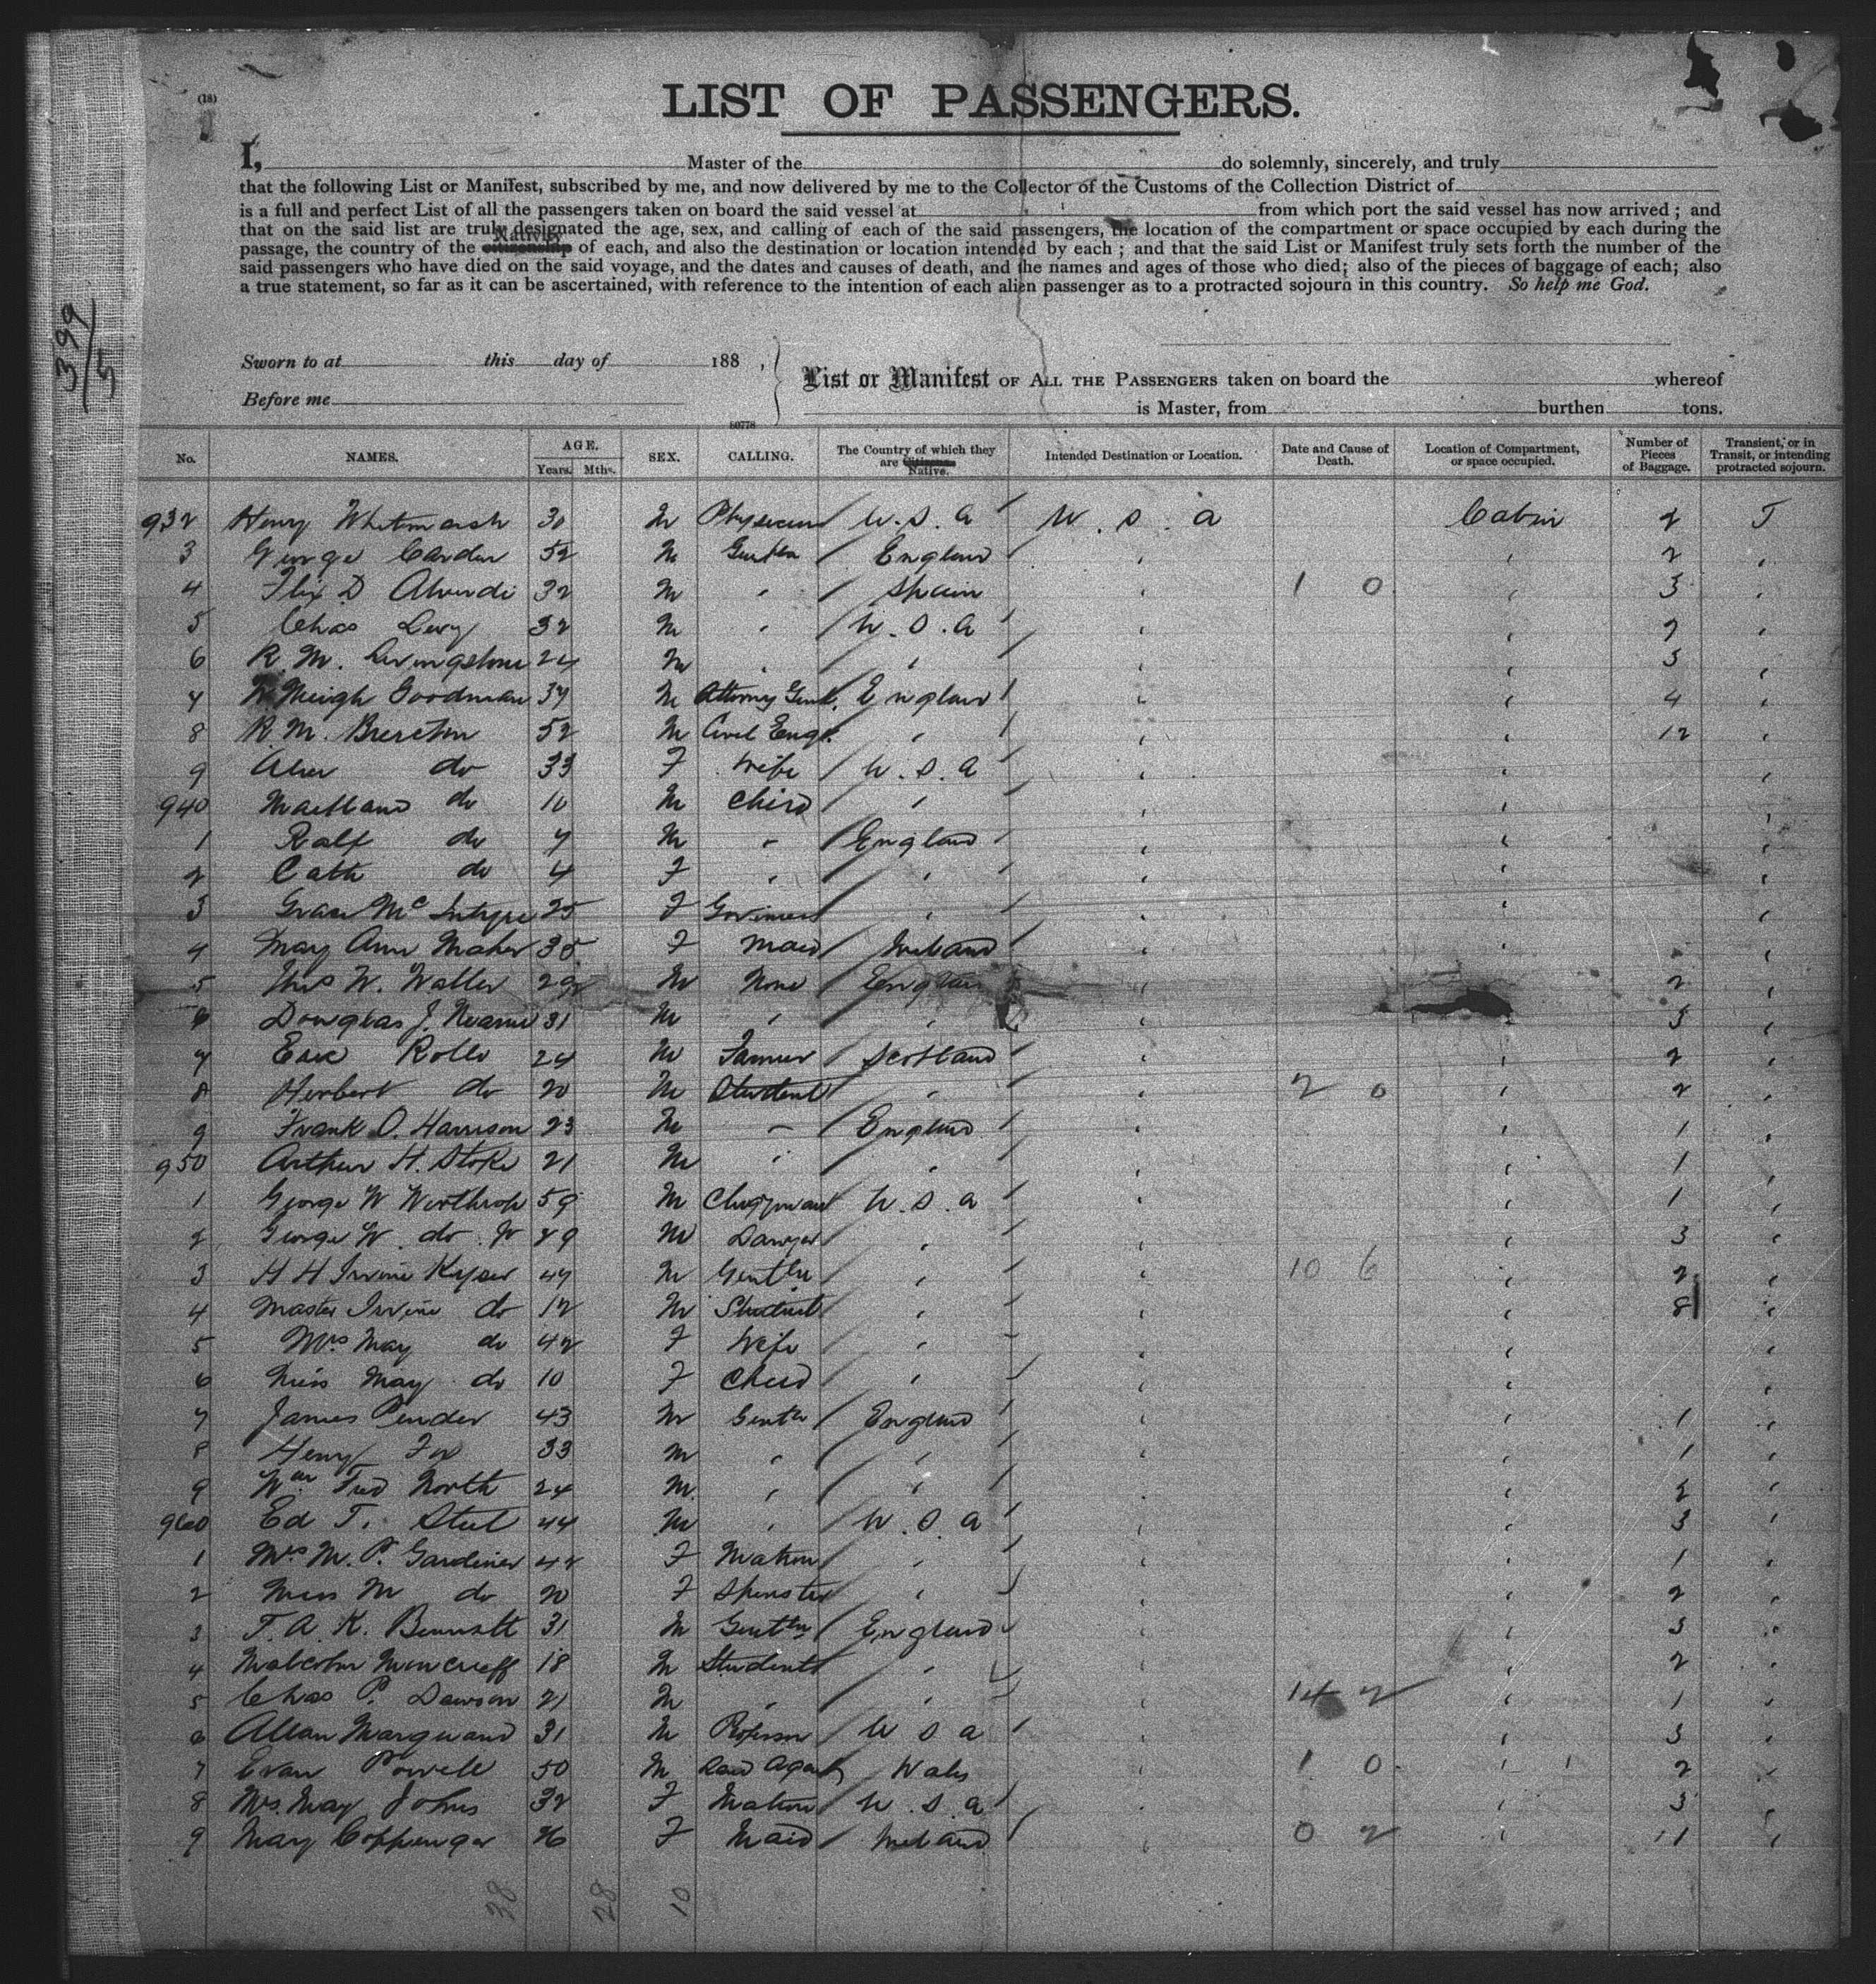 (18)
LIST OF PASSENGERS.
I, Master of the do solemnly, sincerely, and truly
that the following List or Manifest, subscribed by me, and now delivered by me to the Collector of the Customs of the Collection District of
is a full and perfect List of all the passengers taken on board the said vessel at from which port the said vessel has now arrived; and
that on the said list are truly designated the age, sex, and calling of each of the said passengers, the location of the compartment or space occupied by each during the
Nativity
passage, the country of the citizenship of each, and also the destination or location intended by each; and that the said List or Manifest truly sets forth the number of the
said passengers who have died on the said voyage, and the dates and causes of death, and the names and ages of those who died; also of the pieces of baggage of each; also
a true statement, so far as it can be ascertained, with reference to the intention of each alien passenger as to a protracted sojourn in this country. So help me God.
399/5
Sworn to at this day of 188 ,
Before me
List or Manifest OF ALL THE PASSENGERS taken on board the whereof
is Master, from burthen tons.
80778
No. NAMES. AGE. Years. Mths. SEX. CALLING. The Country of which they are Citizens. Native. Intended Destination or Location. Date and Cause of Death. Location of Compartment, or space occupied. Number of Pieces of Baggage. Transient, or in Transit, or intending protracted sojourn.
932 Henry Whitmarsh 30 M Physician U.S.A U.S.A Cabin 2 T
3 George Carder 52 M England 2
4 D 32 M " Spain " 1 0 " 3 "
5 Chas Levy 32 M " U.S.A " " 2 "
6 R. M. Livingstone 24 M " " " " 3 "
7 Meigh Goodman 37 M Attorney Genl. England " " 4 "
8 R. M. Brereton 52 M Civil Engr. " " " 12 "
9 do 33 F Wife U.S.A " " "
940 Maitland do 10 M Child " " " "
1 Ralf do 7 M " England " " "
2 Cath do 4 F " " " " "
3 Grace McIntyre 25 F " " " "
4 May Ann Maher 35 F Maid Ireland " " "
5 Thos W. Waller M None England " 2 "
6 Douglas J. 31 M " " " 3 "
7 Rollo 24 M Farmer Scotland " " 2 "
8 Herbert do 20 M Student " " 2 0 " 2 "
9 Frank O. Harrison 23 M " England " " 1 "
950 Arthur H. Stoke 21 M " " " " 1 "
1 George W 59 M Clergyman U.S.A " " 1 "
2 George W. do Jr 29 M Lawyer " " " 3 "
3 H H Irvine Kyser 47 M Gentln " " 10 6 " 2 "
4 Master Irvine do 12 M Student " " " 8 "
5 Mrs May do 42 F Wife " " " "
6 Miss May do 10 F Child " " " "
7 James Pender 43 M Gentln England " " 1 "
8 Henry Fox 33 M " " " " 1 "
9 Wm Fred North 24 M " " " " 2 "
960 Ed T. Steel 44 M " U.S.A " " 3 "
1 Mrs M. P. Gardiner 42 F Matron " " " 1 "
2 Miss M do 20 F Spinster " " " 2 "
3 T. A. K. Bennett 31 M Gentln England " " 3 "
4 Malcolm Moncrieff 18 M Student " " " 2 "
5 Chas P. Dawson 21 M " " " 14 2 " 1 "
6 Allan Marquand 31 M Professor U S A " " 3 "
7 Evan Powell 50 M Land Agent Wales " 1 0 " 2 "
8 Mrs May Johns 32 F Matron U.S.A " " 3 "
9 Mary Coppenger 26 F Maid Ireland " 0 2 " 11 "
38 28 10